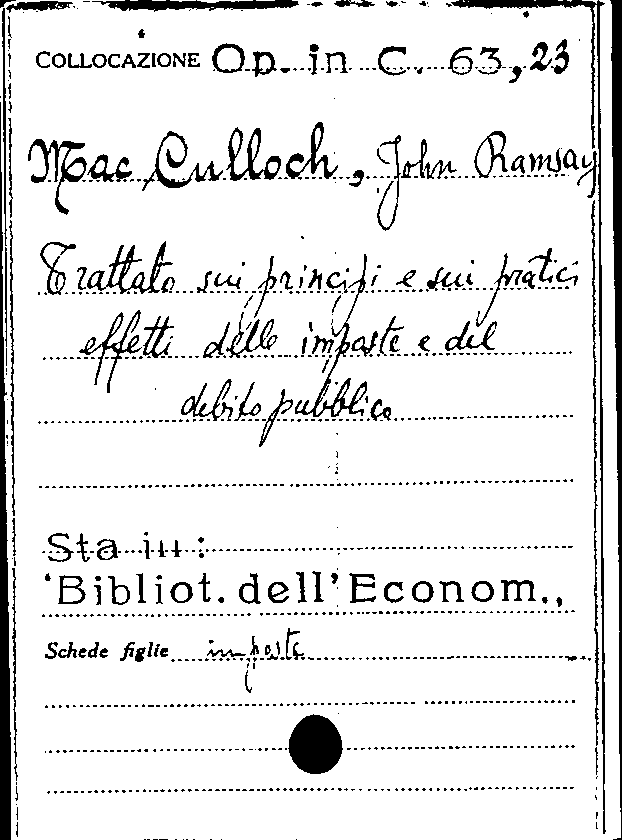 COLLOCAZIONE Op. in C. 63,23
Mac Culloch, John Ramsay
Trattato sui principi e sui pratici
effetti delle imposte e del
debito pubblico
Sta in:
'Bibliot. dell'Econom.,
Schede figlie imposte